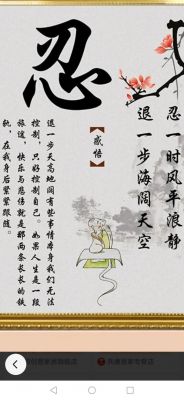 忍一时风平浪静
退一步海阔天空
忍
【感悟】
退一步天高地阔有些事情本身我们无法
控制，只好控制自己。如果人生是一段
旅途，快乐与悲伤就是那两条长长的铁
轨，在我身后紧紧跟随。